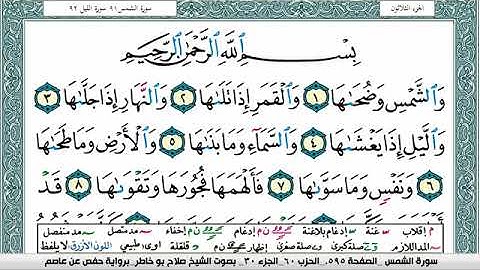 الجزء الثلاثون سورة الشمس ٩١ سورة الليل ٩٢
بِسْمِ ٱللَّهِ ٱلرَّحْمَٰنِ ٱلرَّحِيمِ
وَٱلشَّمْسِ وَضُحَىٰهَا ١ وَٱلْقَمَرِ إِذَا تَلَىٰهَا ٢ وَٱلنَّهَارِ إِذَا جَلَّىٰهَا ٣
وَٱلَّيْلِ إِذَا يَغْشَىٰهَا ٤ وَٱلسَّمَآءِ وَمَا بَنَىٰهَا ٥ وَٱلْأَرْضِ وَمَا طَحَىٰهَا
٦ وَنَفْسٍ وَمَا سَوَّىٰهَا ٧ فَأَلْهَمَهَا فُجُورَهَا وَتَقْوَىٰهَا ٨ قَدْ
م إقلاب غنة إدغام بلاغنة ن م إدغام ن م إخفاء مد متصل مد منفصل
المد اللازم صلة كبرى صلة صغرى إظهار ن م قلقلة طبيعي اللون الأزرق لا يلفظ
سورة الشمس _ الصفحة ٥٩٥_ الحزب ٦٠_ الجزء ٣٠_ بصوت الشيخ صلاح بو خاطر_ برواية حفص عن عاصم